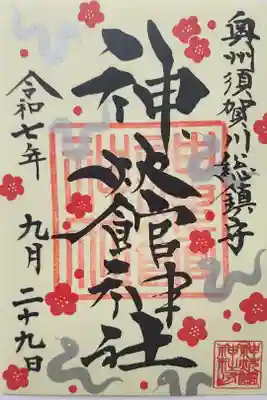 奥州須賀川総鎮守
神炊館神社
令和七年 九月 二十九日